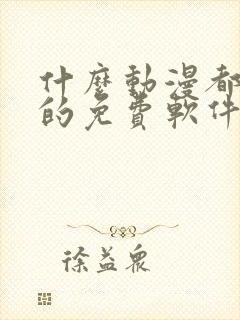 什麼動漫都
的免費軟件
徐益眾